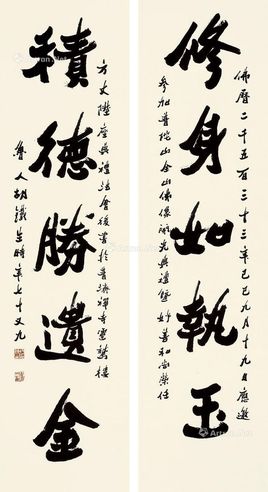 修身如執玉
積德勝遺金
佛曆二千五百三十三年己巳九月十九日應邀
參加普陀山全山佛像開光典禮暨妙善和尚榮任
方丈陞座典禮法會後書於普濟禪寺靈鷲樓
魯人胡鐵生時年七十又九